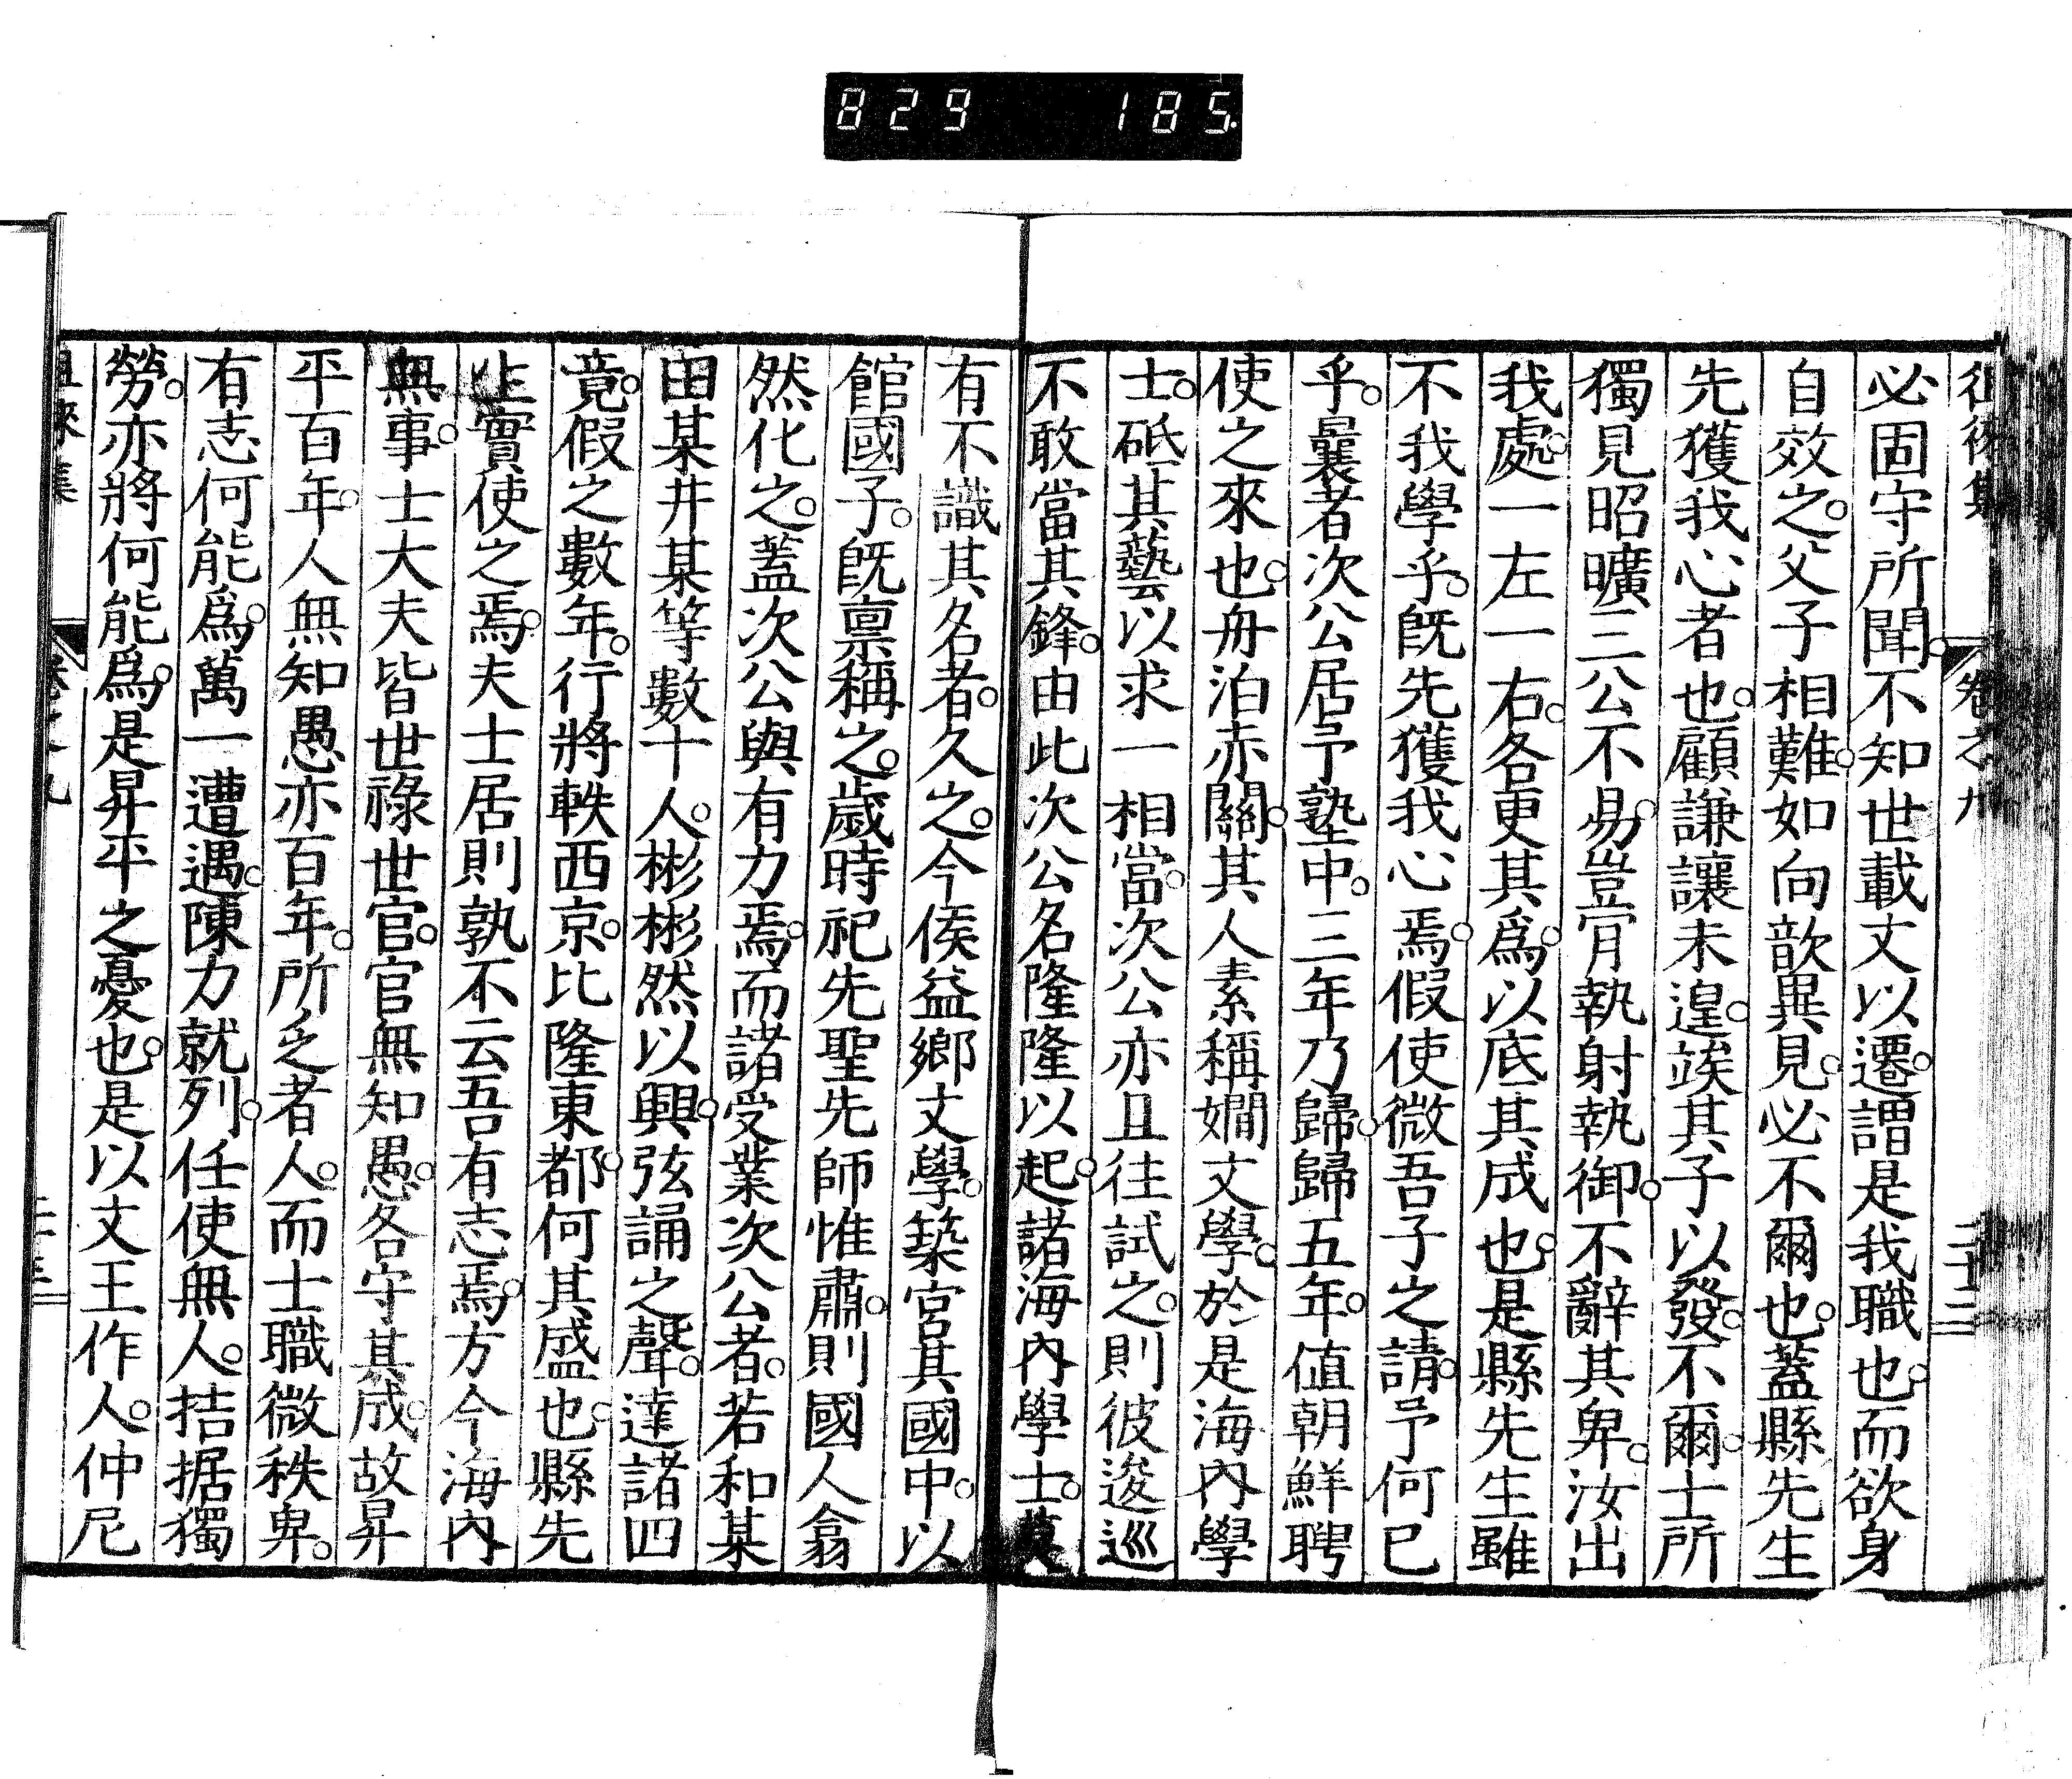 829 185
徂徠集 卷之九 二十三
必固守所聞。不知世載文以遷。謂是我職也。而欲身
自效之。父子相難。如向歆異見。必不爾也。蓋縣先生
先獲我心者也。顧謙讓未遑。竢其子以發。不爾。士所
獨見昭曠。三公不易。豈肎執射執御。不辭其卑。汝出
我處。一左一右。各更其爲。以底其成也。是縣先生雖
不我學乎。既先獲我心焉。假使微吾子之請。予何已
乎。曩者次公居予塾中。三年乃歸。歸五年。值朝鮮聘
使之來也。舟泊赤關。其人素稱嫺文學。於是海內學
士。砥其藝以求一相當。次公亦且往試之。則彼逡巡
不敢當其鋒。由此次公名隆隆以起。諸海內學士。莫
有不識其名者。久之。今侯益鄉文學。築宮其國中。以
館國子。既禀稱之。歲時祀先聖先師惟肅。則國人翕
然化之。蓋次公與有力焉。而諸受業次公者。若和某
田某井某等數十人。彬彬然以興。弦誦之聲。達諸四
竟。假之數年。行將軼西京。比隆東都。何其盛也。縣先
生實使之焉。夫士居則孰不云吾有志焉。方今海內
無事。士大夫皆世祿世官。官無知愚。各守其成。故昇
平百年。人無知愚。亦百年。所乏者人。而士職微秩卑。
有志何能爲。萬一遭遇。陳力就列。任使無人。拮据獨
勞。亦將何能爲。是昇平之憂也。是以文王作人。仲尼
徠集 卷之九